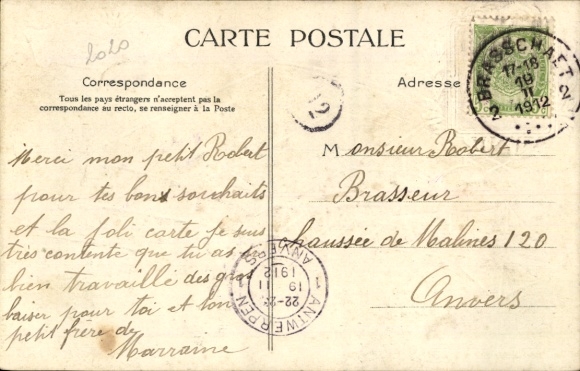 1010
CARTE POSTALE
Correspondance
Tous les pays étrangers n'acceptent pas la
correspondance au recto, se renseigner à la Poste
Merci mon petit Robert
pour tes bons souhaits
et la joli carte je suis
très contente que tu as si
bien travaillé des gros
baiser pour toi et ton
petit frère de
Marraine
12
Adresse
2 BRASSCHAET 2
17-18
19
II
1912
Monsieur Robert
Brasseur
Chaussée de Malines 120
Anvers
1 ANTWERPEN 1
ANVERS
22-2
19
II
1912